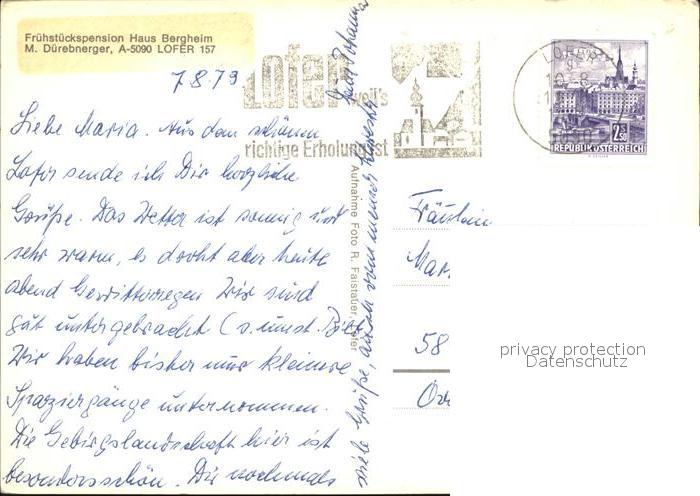 Frühstückspension Haus Bergheim
M. Dürebnerger, A-5090 LOFER 157
7 8 79
Lofer weil's
richtige Erholung ist
LOFER
2.50
REPUBLIK ÖSTERREICH
Liebe Maria. Aus dem schönen
Lofer sende ich Dir herzliche
Grüße. Das Wetter ist sonnig und
sehr warm, es droht aber heute
abend Gewitterregen Wir sind
gut untergebracht (s. umst.
Wir haben bisher nur kleinere
Spaziergänge unternommen.
Die Gebirgslandschaft hier ist
besonders schön. Dir nochmals
viele Grüße, auch von meiner
Johanna
Aufnahme Foto R. Faistauer, Lofer
Fräulein
Mar
58
privacy protection
Datenschutz